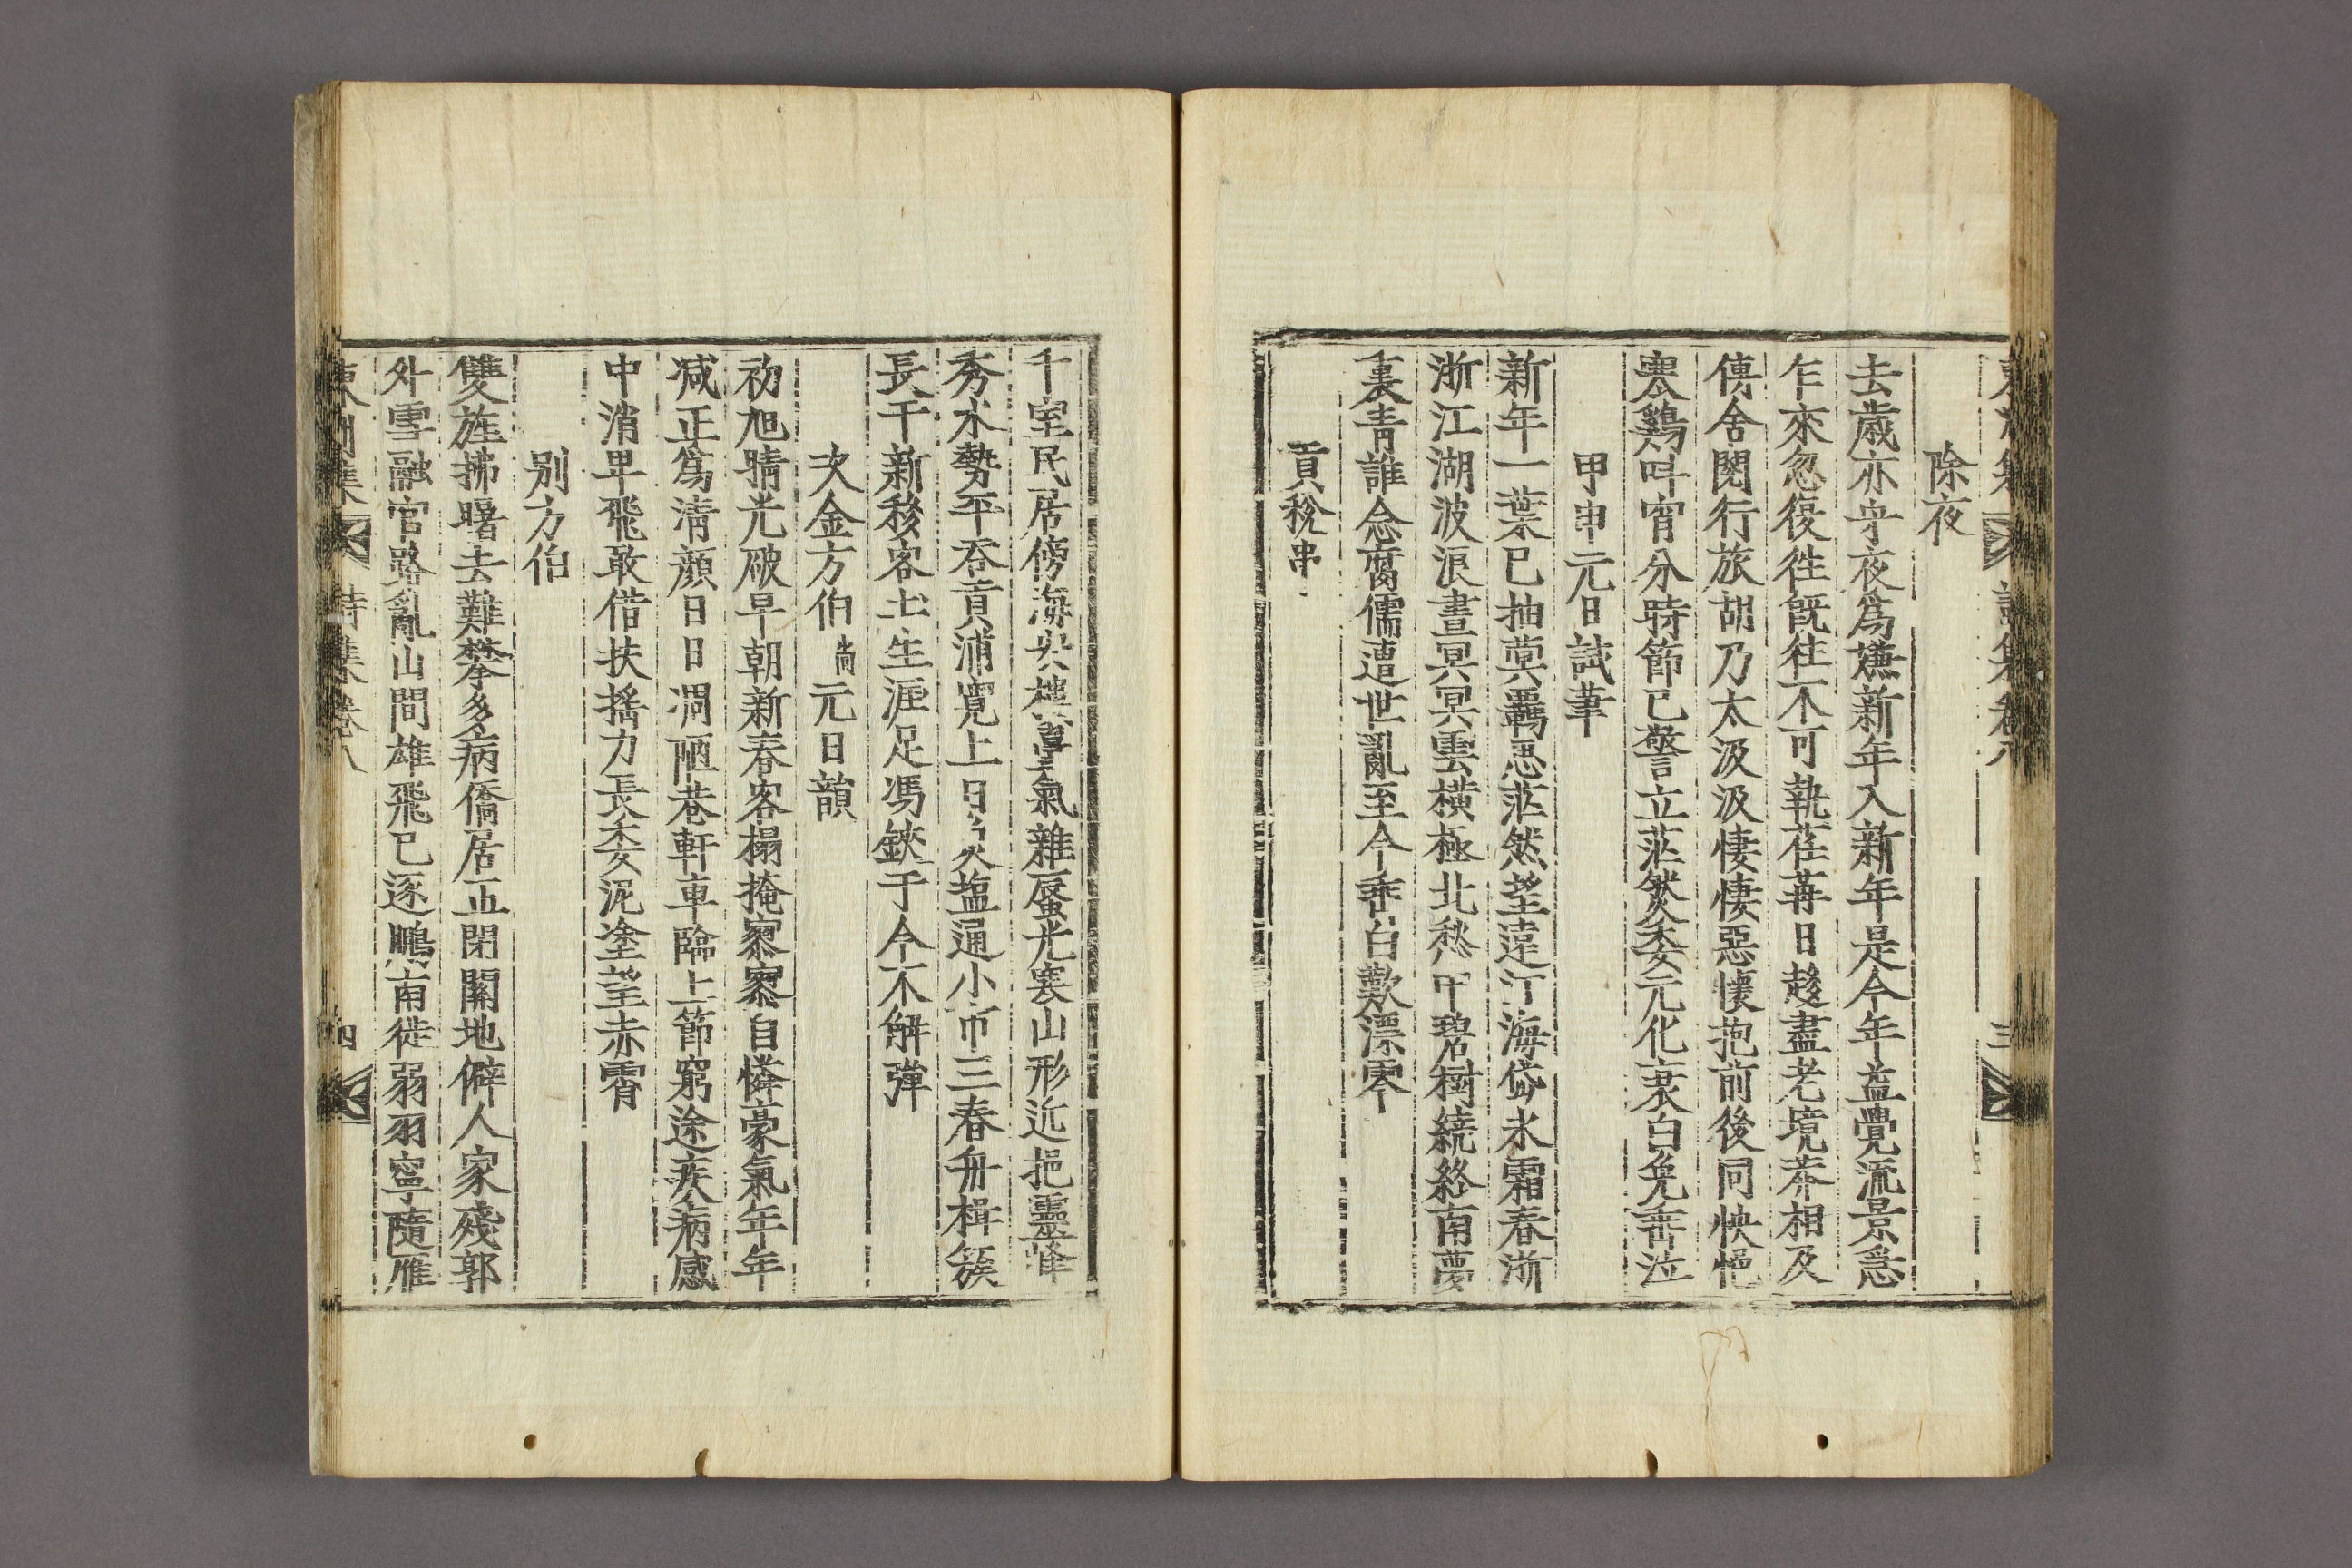 除夜
去歲亦守夜爲嫌新年入新年是今年益覺流景急
乍來忽復徃旣徃不可執荏苒日趍盡老境莽相及
傳舍閱行旅胡乃太汲汲悽悽惡懷抱前後同怏悒
寒鷄叫宵分時節已警立茫然委元化衰白免垂泣
甲申元日試筆
新年一葉已抽蓂羈思茫然望遠汀海岱氷霜春淅
浙江湖波浪晝冥冥雲橫極北愁中碧樹繞終南夢
裏青誰念腐儒遭世亂至今垂白歎漂零
貢稅串
千室民居傍海安樓臺氣雜蜃光寒山形近挹靈峰
秀水勢平呑貢浦寬上日烟火塩通小市三春舟楫簇
長干新移客土生涯足馮鋏于今不解彈
次金方伯 尙 元日韻
初旭晴光破早朝新春客榻掩寥寥自憐豪氣年年
减正爲淸顔日日凋陋巷軒車臨上節窮途疾病感
中消卑飛敢借扶搖力長委泥塗望赤霄
別方伯
雙旌拂曙去難攀多病僑居正閉關地僻人家殘郭
外雪融官路亂山間雄飛已逐鵬南徙弱羽寧隨雁
東州集 詩集卷八 四